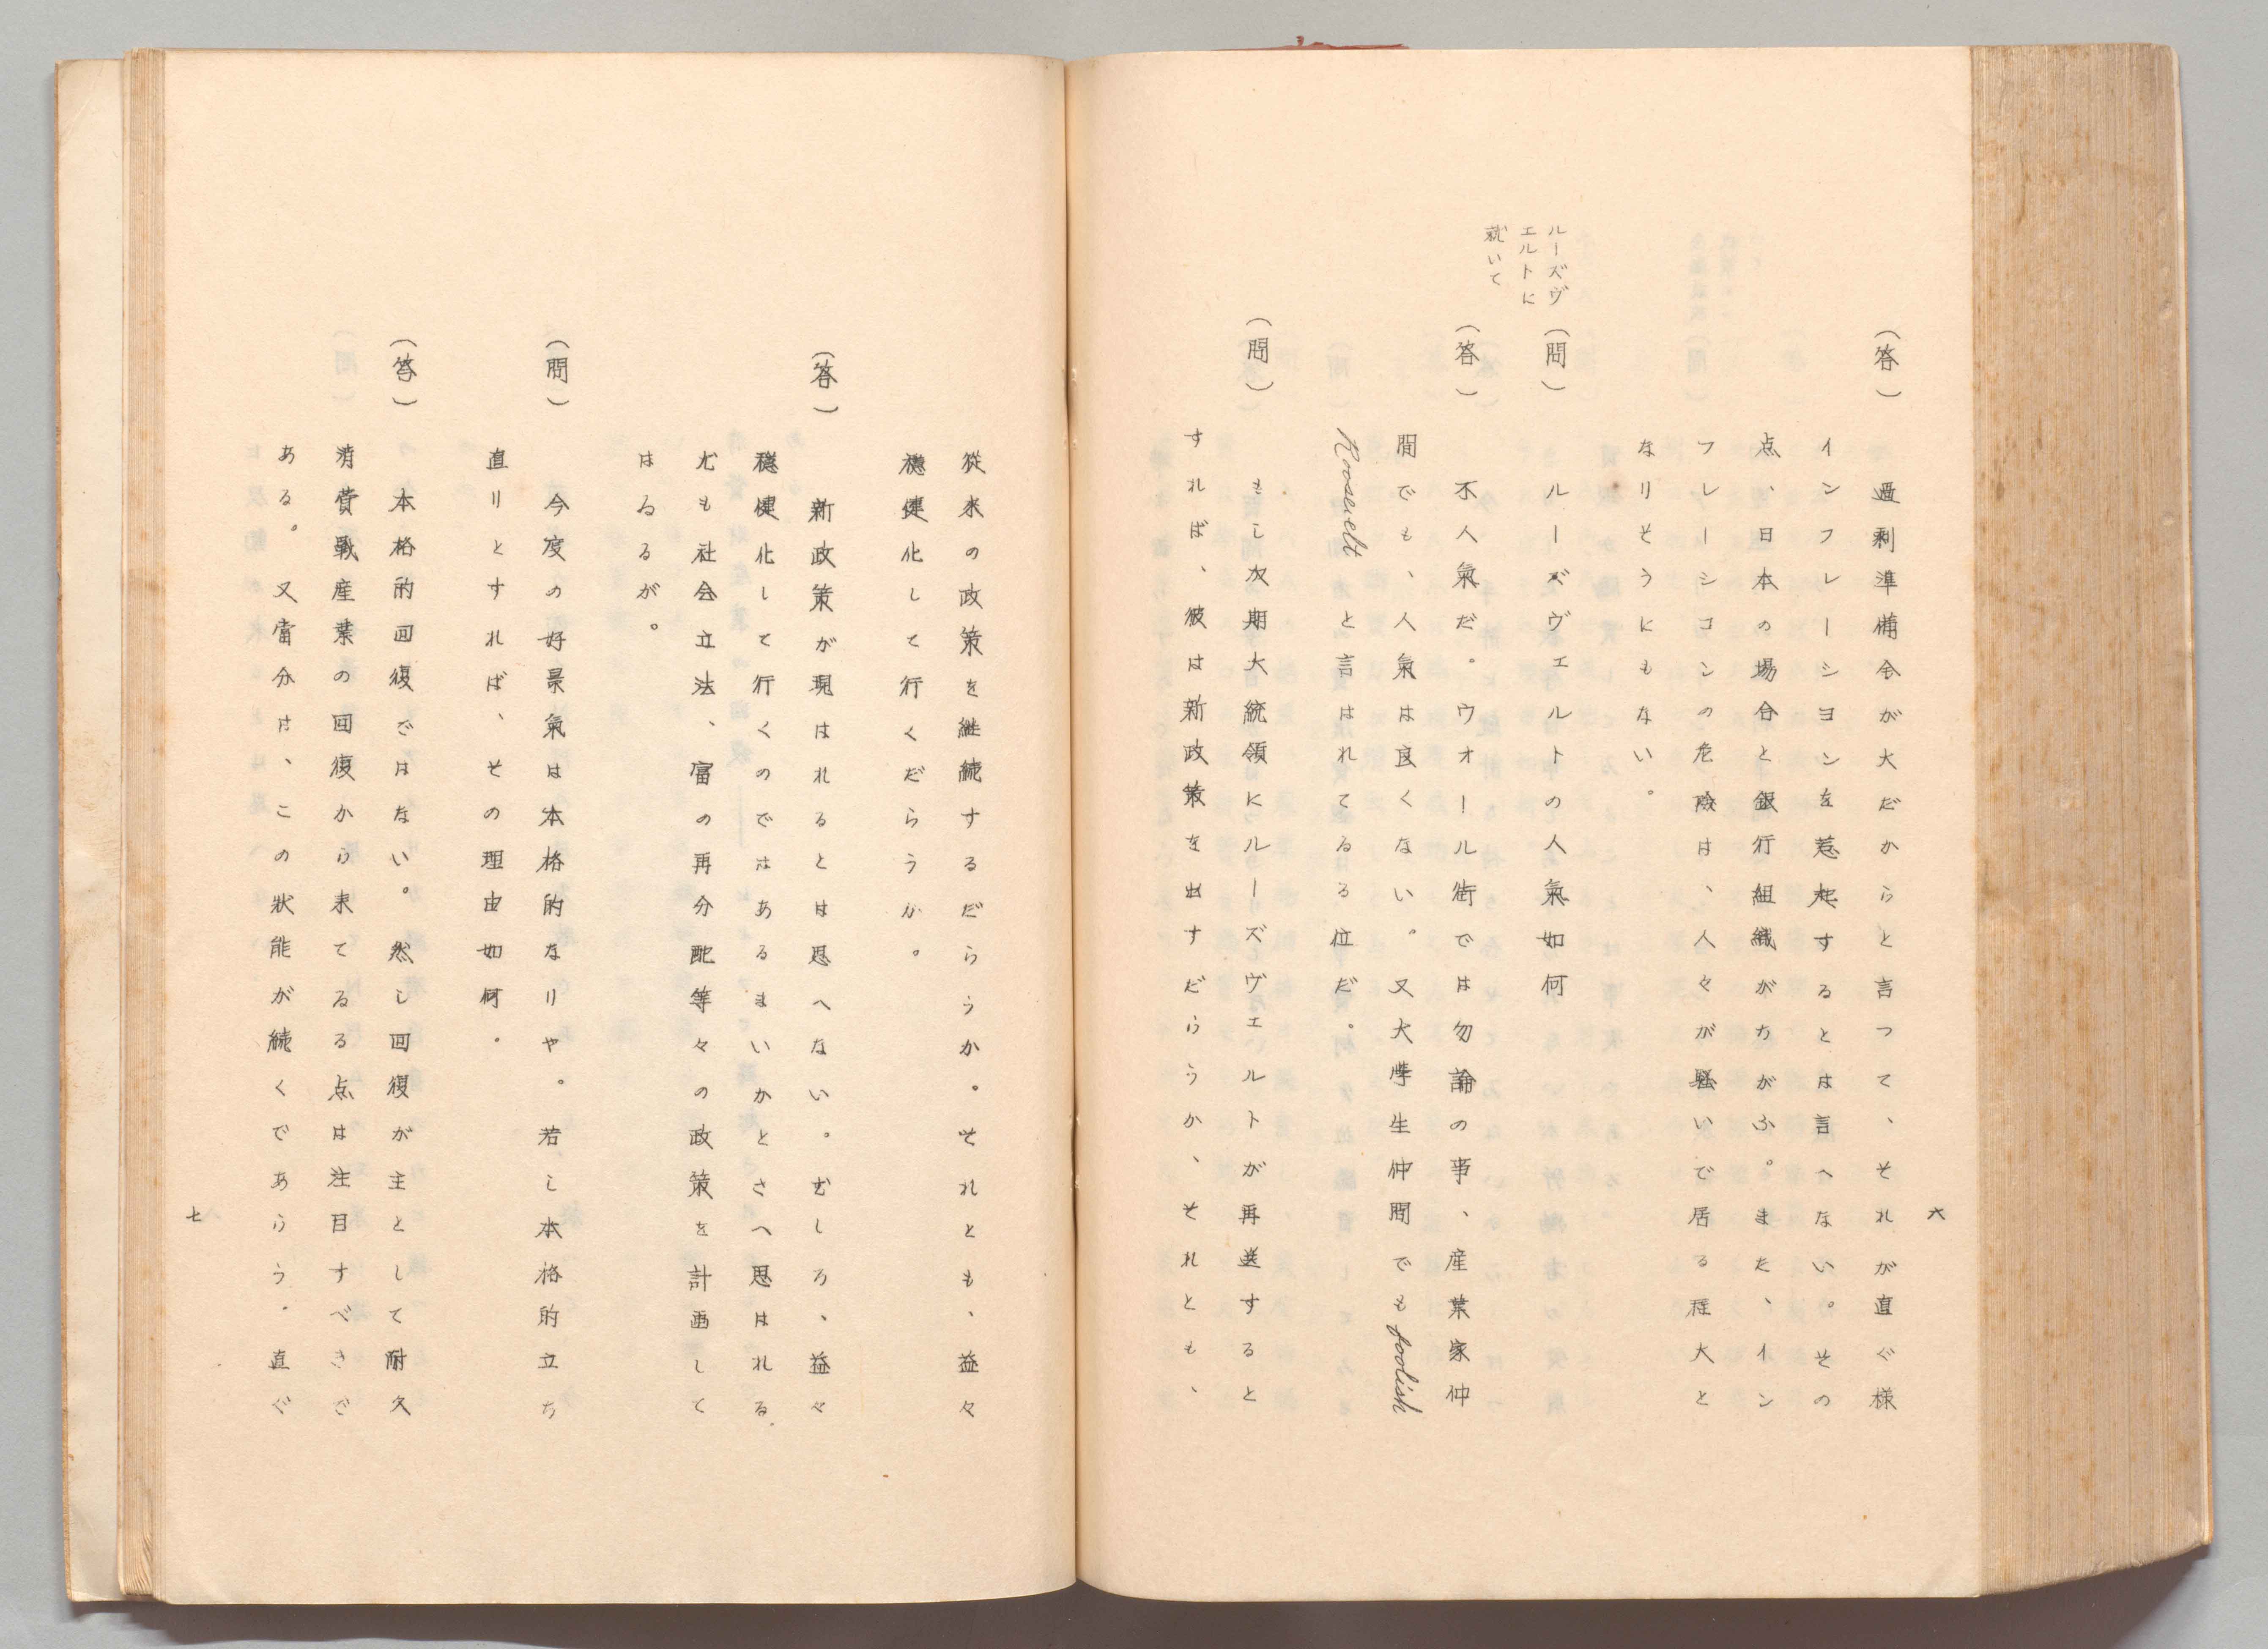 六
（答）　過剰準備金が大だからと言つて、それが直ぐ様
インフレーシヨンを惹起するとは言へない。その
点、日本の場合と銀行組織がちがふ。また、イン
フレーシヨンの危険は、人々が騒いで居る程大と
なりそうにもない。
ルーズヴ
エルトに
就いて
（問）　ルーズヴェルトの人氣如何
（答）　不人氣だ。ウオール街では勿論の事、産業家仲
間でも、人氣は良くない。又大學生仲間でも foolish
Roosevelt と言はれてゐる位だ。
（問）　もし次期大統領にルーズヴェルトが再選すると
すれば、彼は新政策を出すだらうか、それとも、
從来の政策を継続するだらうか。それとも、益々
穏健化して行くだらうか。
（答）　新政策が現はれるとは思へない。むしろ、益々
穏健化して行くのではあるまいかとさへ思はれる。
尤も社会立法、富の再分配等々の政策を計画して
はゐるが。
（問）　今度の好景氣は本格的なりや。若し本格的立ち
直りとすれば、その理由如何.
（答）　本格的回復ではない。然し回復が主として耐久
消費戰産業の回復から来てゐる点は注目すべきで
ある。又當分は、この状能が続くであらう.直ぐ
七